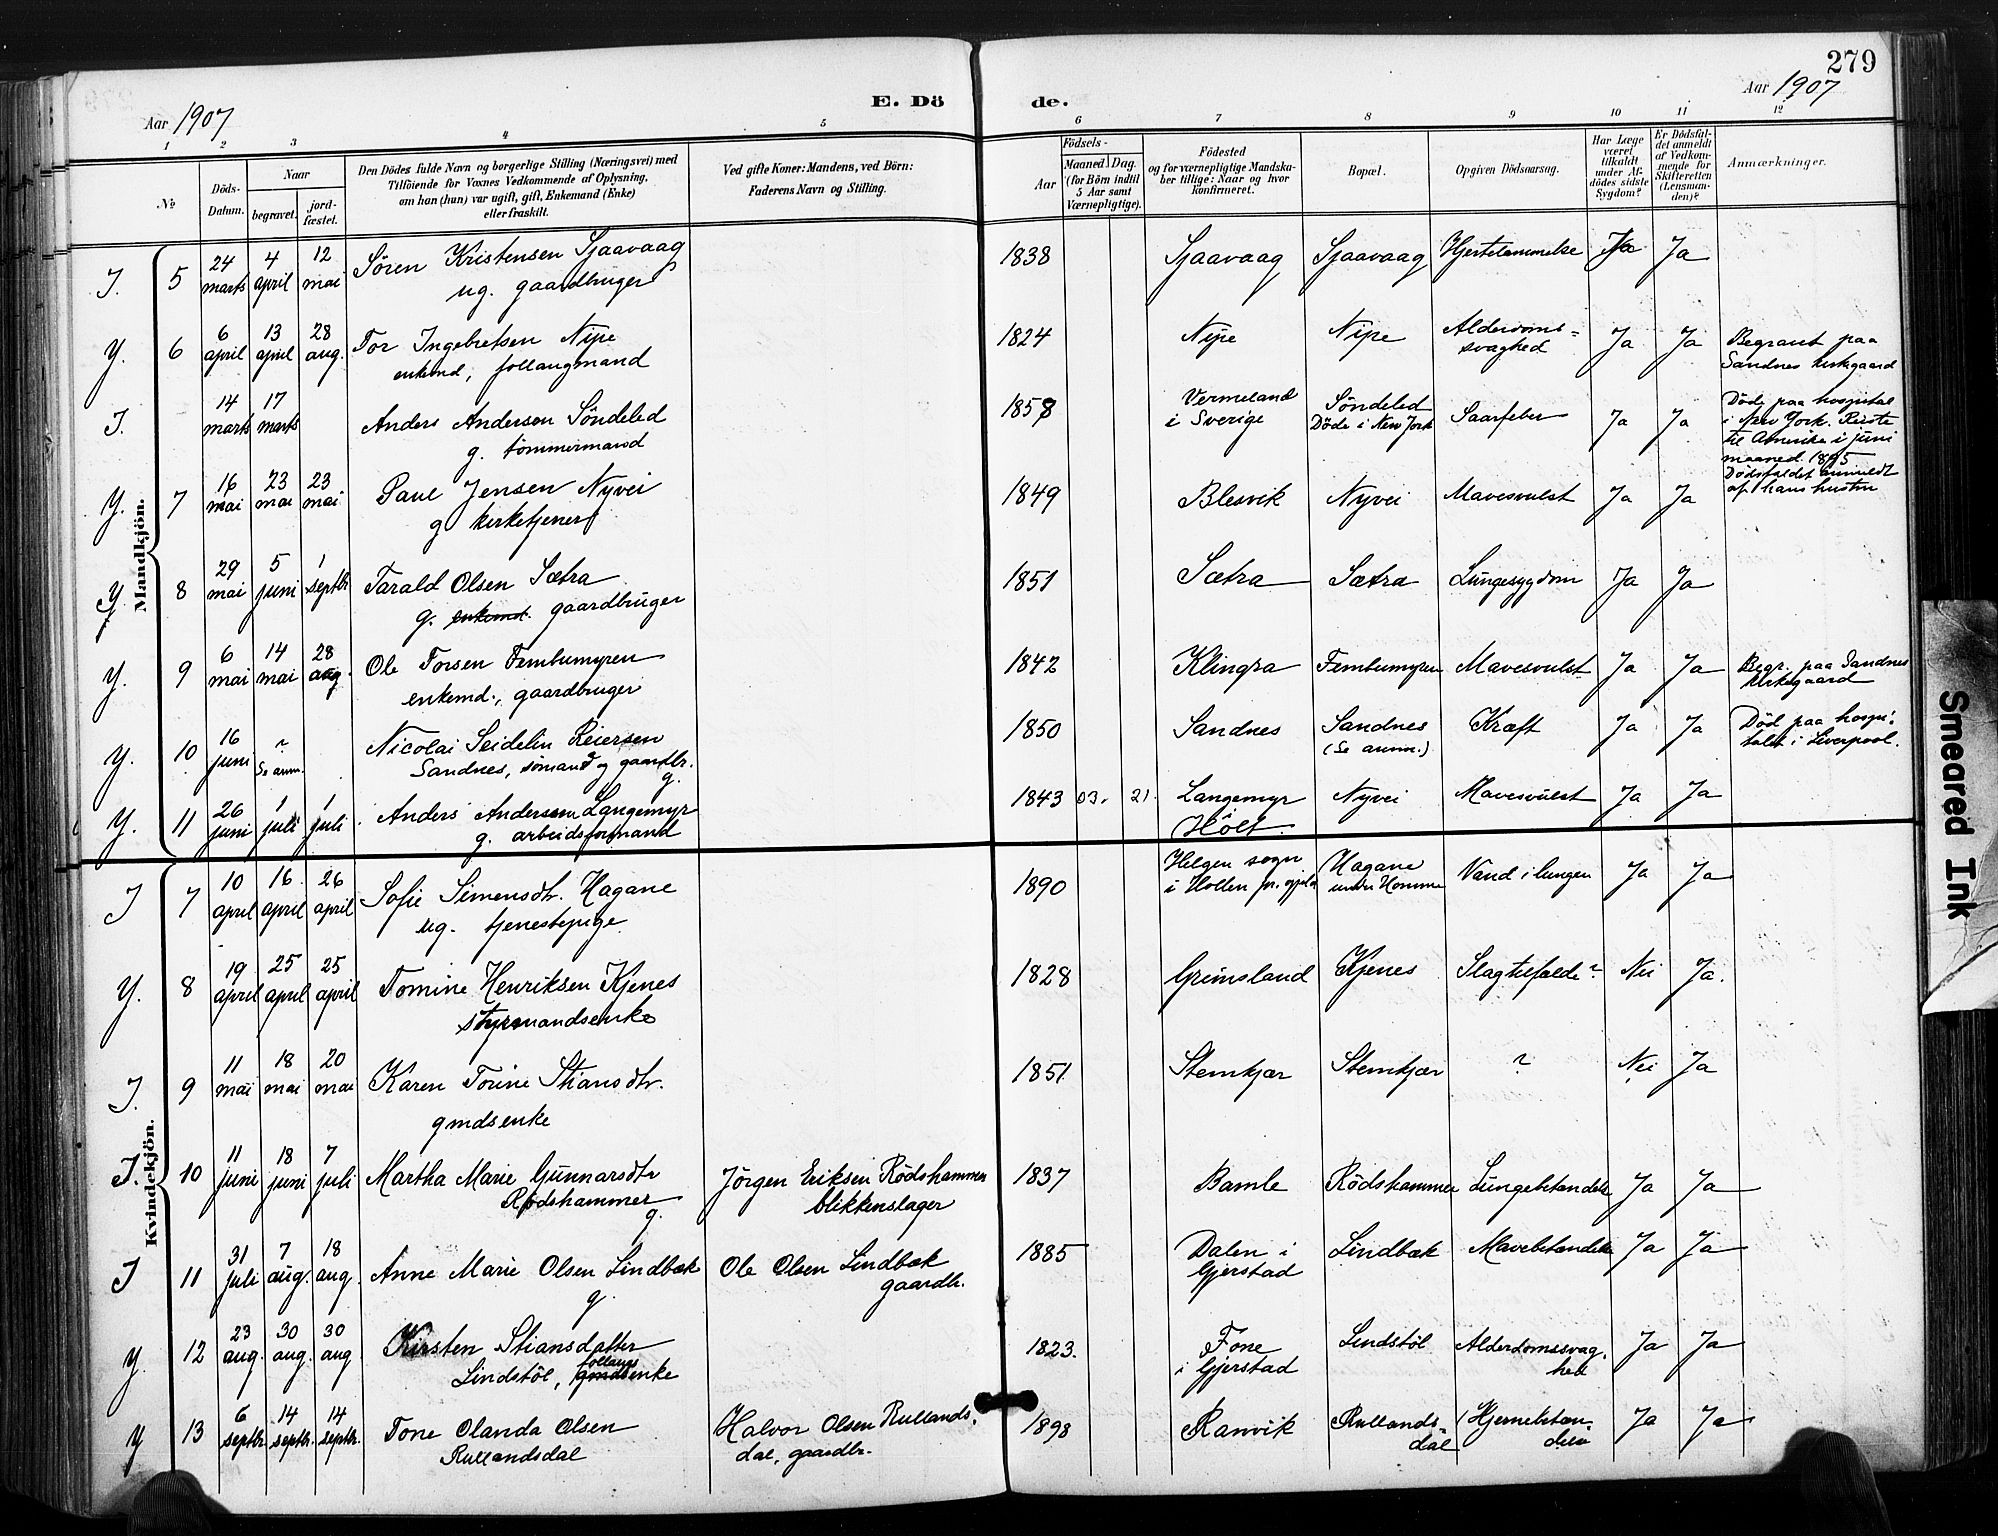 279
Aar 1907
E. Dö
de.
Aar 1907
1 2 3 4 5 6 7 8 9 10 11 12
№
Döds-
Datum.
Naar
begravet.
jord-
fæstet.
Den Dödes fulde Navn og borgerlige Stilling (Næringsvei) med
Tilföiende for Voxnes Vedkommende af Oplysning,
om han (hun) var ugift, gift, Enkemand (Enke)
eller fraskilt.
Ved gifte Koner: Mandens, ved Börn:
Faderens Navn og Stilling.
Födsels-
Aar
Maaned. Dag.
(for Börn indtil
5 Aar samt
Værnepligtige).
Födested
og for værnepligtige Mandska-
ber tillige: Naar og hvor
konfirmeret.
Bopæl.
Opgiven Dödsaarsag.
Har Læge
været
tilkaldt
under Af-
dödes sidste
Sygdom?
Er Dödsfal-
det anmeldt
af Vedkom-
mende for
Skifteretten
(Lensman-
den)?
Anmærkninger.
Mandkjön.
I. 5 24 marts 4 april 12 mai Sören Kristensen Sjaavaag 1838 Sjaavaag Sjaavaag Hjertelammelse Ja Ja
ug. gaardbruger
Y. 6 6 april 13 april 28 aug. Tor Ingebretsen Nipe 1824 Nipe Nipe Alderdoms- Ja Ja Begravet paa
enkemd, follaugmand svaghed Sandnes kirkegaard
I. 14 marts 17 marts Anders Andersen Söndeled 1858 Vermeland Söndeled Saarfeber Ja Ja Död paa hospital
g. tömmermand i Sverige Döde i New York i New York. Reiste
til Amerika i juni
maaned 1895
Dödsfaldet anmeldt
af hans hustru
Y. 7 16 mai 23 mai 23 mai Paul Jensen Nyvei 1849 Blesvik Nyvei Mavesvulst Ja Ja
g kirketjener
Y 8 29 mai 5 juni 1 septbr Tarald Olsen Sætra 1851 Sætra Sætra Lungesygdom Ja Ja
g. enkemd. gaardbruger
Y. 9 6 mai 14 mai 28 aug. Ole Torsen Fembumyren 1842 Klingra Fembumyren Mavesvulst Ja Ja Begr. paa Sandnes
enkemd., gaardbruger kirkegaard
Y. 10 16 juni ? Se anm. Nicolai Seidelin Reiersen 1850 Sandnes Sandnes Kræft Ja Ja Död paa hospi-
Sandnes, sömand og gaardbr. (Se anm.) talet i Liverpool.
g.
Y. 11 26 juni 1 juli 1 juli Anders Anderssen Langemyr 1843 03. 21. Langemyr Nyvei Mavesvulst Ja Ja
g. arbeidsformand Holt.
Kvindekjön.
I 7 10 april 16 april 26 april Sofie Simensdtr. Hagane 1890 Helgen sogn Hagane Vand i lungen Ja Ja
ug. tjenestepige i Hollen pr.gjeld under Homme
Y. 8 19 april 25 april 25 april Tomine Henriksen Kjenes 1828 Grimsland Kjenes Slagtilfælde? Nei Ja.
styrmandsenke
I. 9 11 mai 18 mai 20 mai Karen Torine Stiansdtr. 1851 Stemkjær Stemkjær ? Nei Ja
gmdsenke
I. 10 11 juni 18 juni 7 juli Martha Marie Gunnarsdtr Jörgen Eriksen Rödshammer 1837 Bamle Rödshammer Lungebetændelse Ja Ja
Rödshammer blikkenslager
g.
I 11 31 juli 7 aug. 18 aug. Anne Marie Olsen Lindbæk Ole Olsen Lindbæk 1885 Dalen i Lindbæk Mavebetændelse Ja Ja
g. gaardbr. Gjerstad
Y 12 23 aug. 30 aug. 30 aug Kirsten Stiansdatter 1823. Fone Lindstöl Alderdomssvag- Ja Ja
Lindstöl, gmdsenke follaugs i Gjerstad hed
Y 13 6 septbr 14 septbr. 14 septbr Tone Olanda Olsen Halvor Olsen Rullands- 1898 Ranvik Rullands- Hjernebetæn- Ja Ja
Rullandsdal dal, gaardbr. dal delse
Smeared Ink